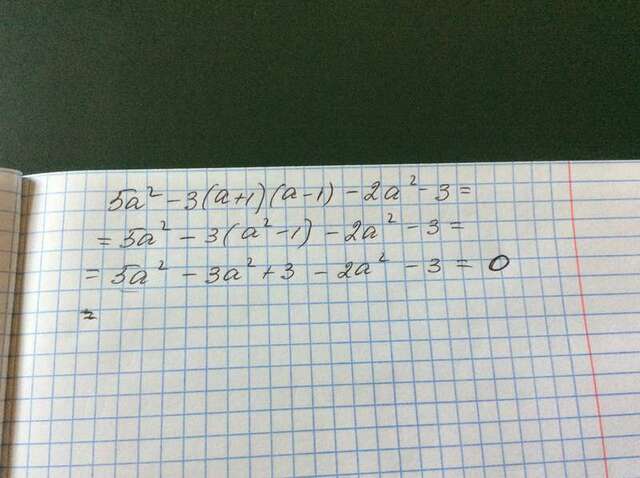 5a² - 3(a+1)(a-1) - 2a² - 3 =
= 5a² - 3(a²-1) - 2a² - 3 =
= 5a² - 3a² + 3 - 2a² - 3 = 0
=